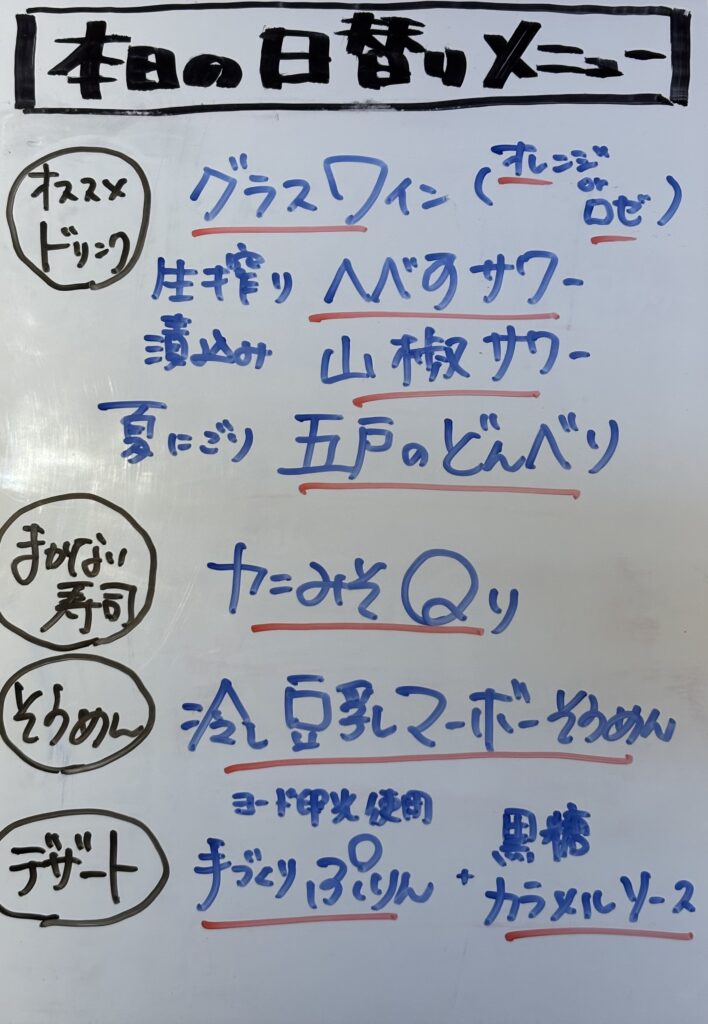 本日の日替りメニュー
オススメ
ドリンク
グラスワイン(オレンジ or ロゼ)
生搾り へべすサワー
漬込み 山椒サワー
夏にごり 五戸のどんべり
まかない
寿司
カニみそQり
そうめん
冷し豆乳マーボーそうめん
デザート
ヨード卵光使用
手づくりぷりん + 黒糖
カラメルソース